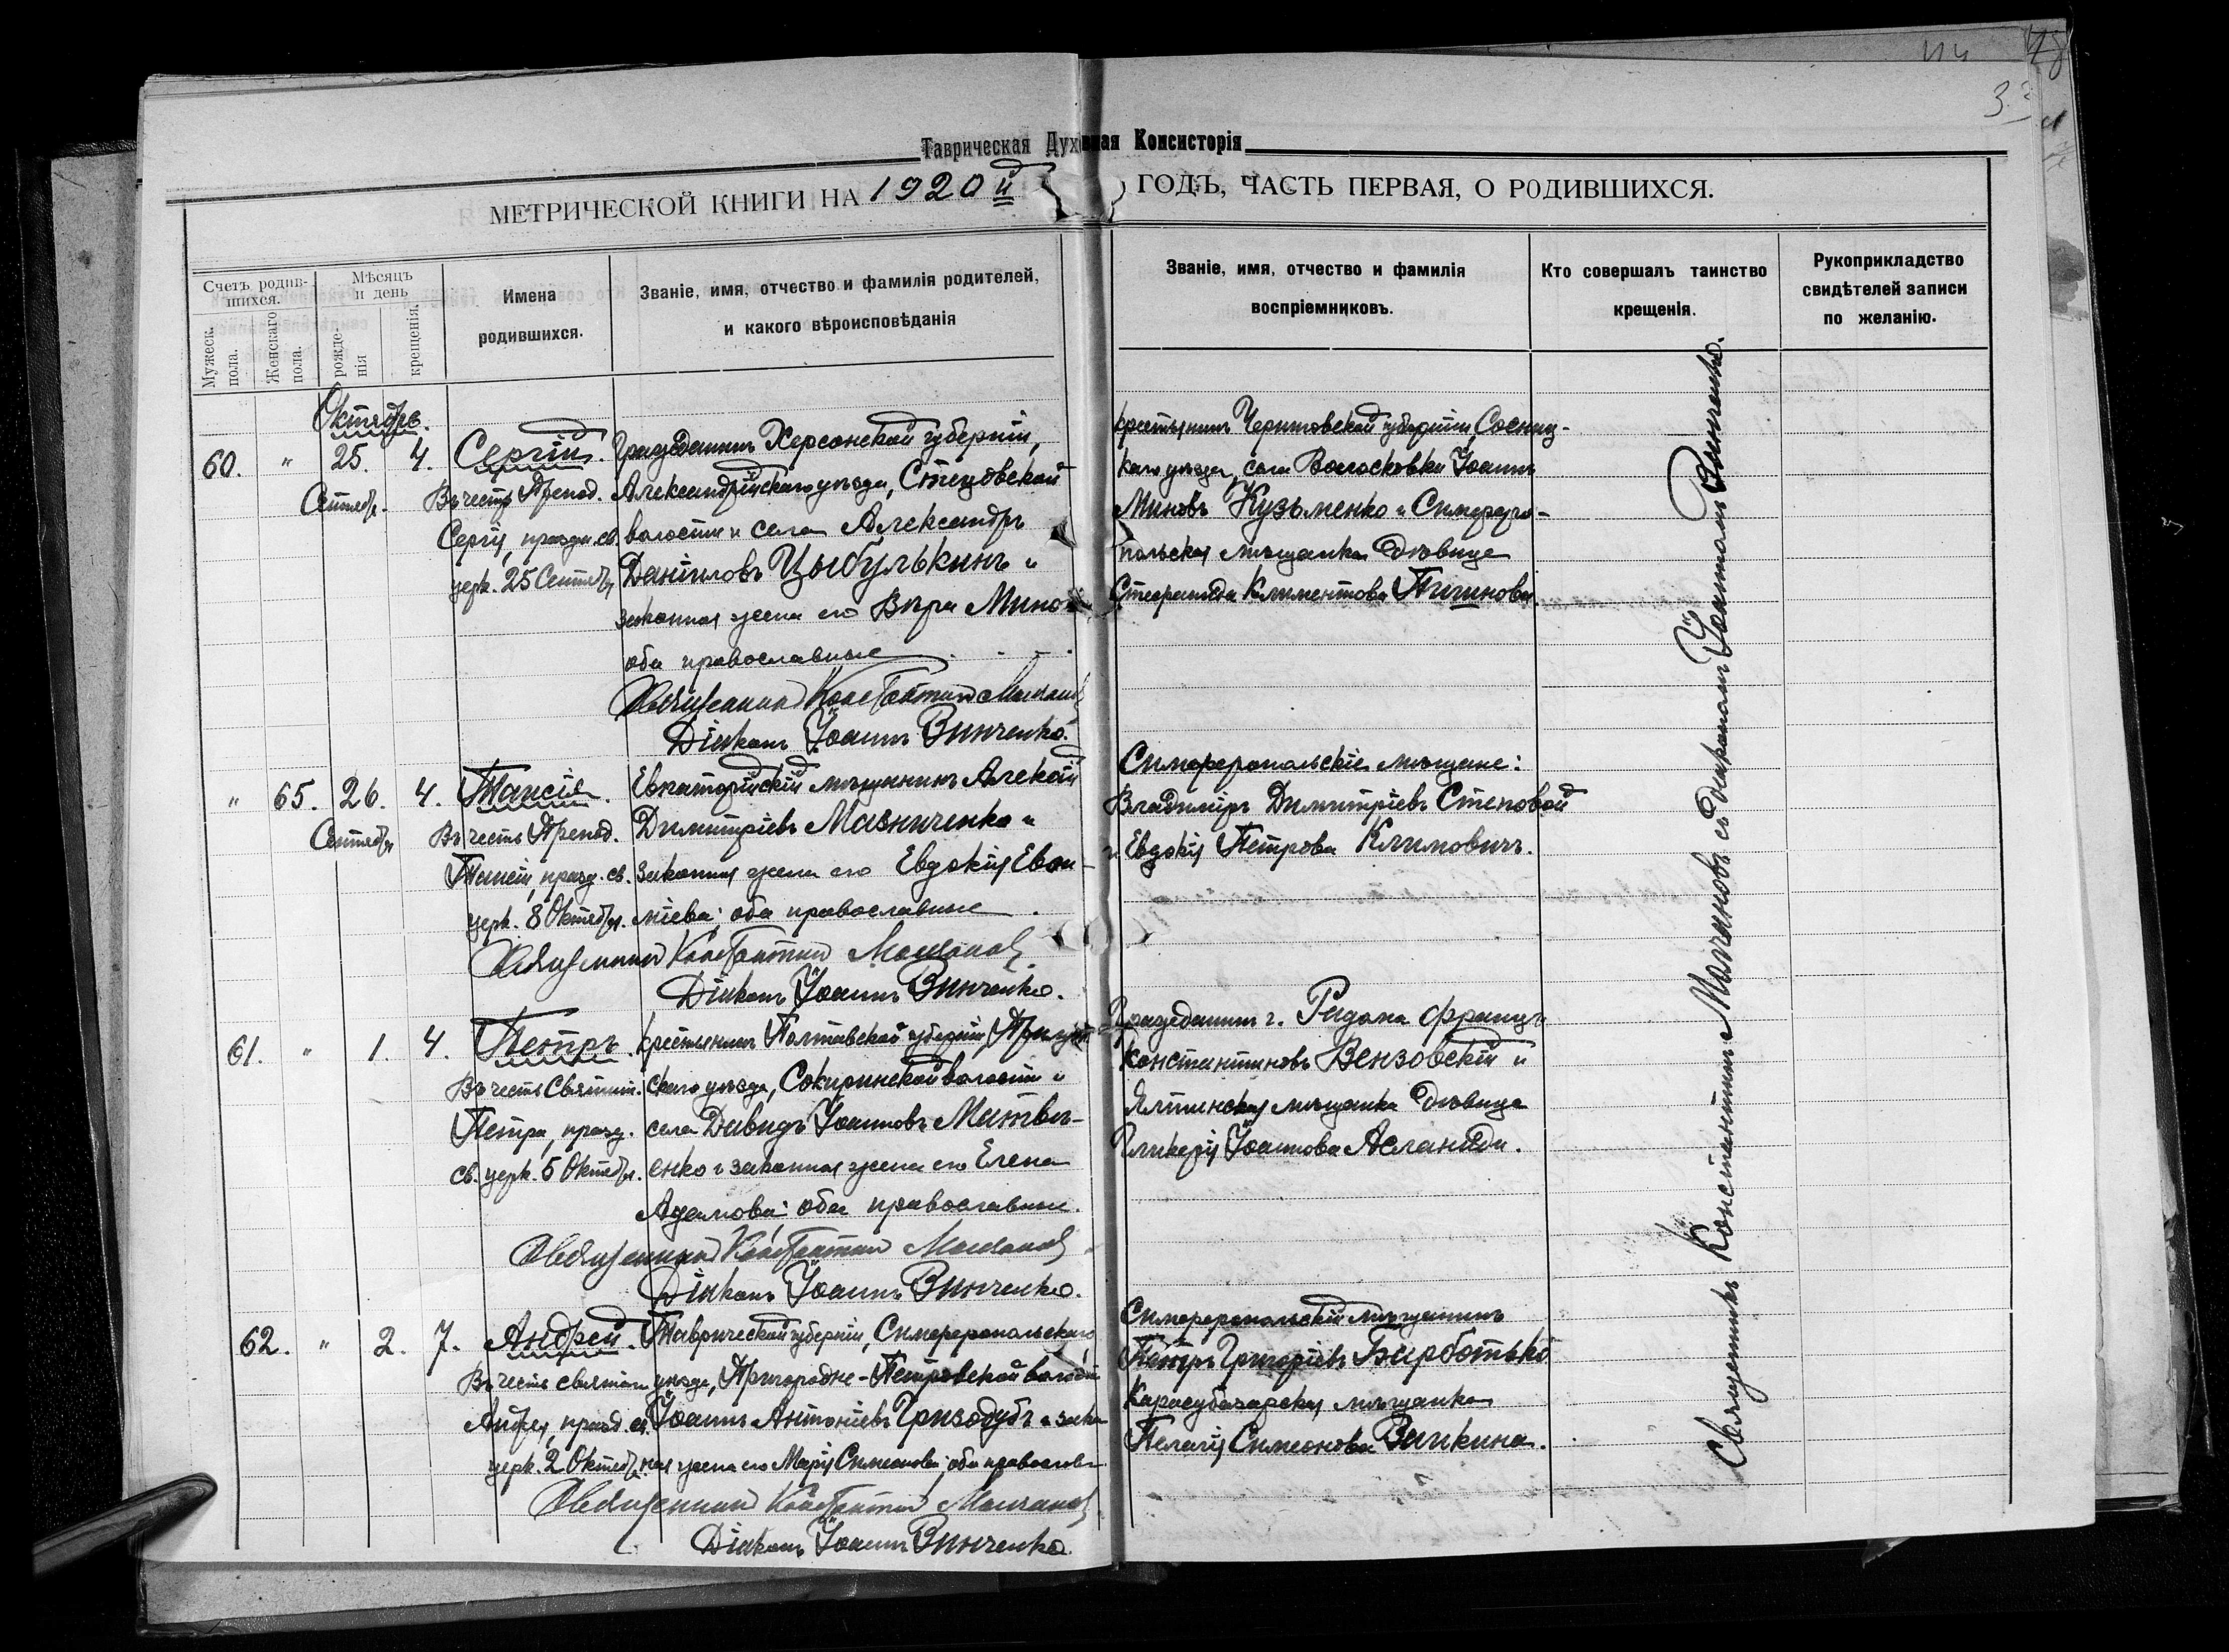 Таврическая Духовная Консисторія
МЕТРИЧЕСКОЙ КНИГИ НА 1920й ГОДЪ, ЧАСТЬ ПЕРВАЯ, О РОДИВШИХСЯ.
Счетъ родив-
шихся.
Мужеск.
пола.
Женскаго
пола.
Мѣсяцъ
и день
рожде-
нія
крещенія.
Имена
родившихся.
Званіе, имя, отчество и фамилія родителей,
и какого вѣроисповѣданія
Званіе, имя, отчество и фамилія
воспріемниковъ.
Кто совершалъ таинство
крещенія.
Рукоприкладство
свидѣтелей записи
по желанію.
Октябрь.
60. " 25. 4. Сергій.
Сентябр.
Въ честь Препод.
Сергія, праздн. св.
церк. 25 Сентября
Гражданинъ Херсонской губерніи,
Александрійскаго уѣзда, Стецовской
волости и села Александръ
Даніиловъ Цыбулькинъ и
законная жена его Вѣра Мино
оба православные
Священникъ Константинъ Молчановъ
Діаконъ Іоаннъ Винченко.
Крестьянинъ Черниговской губерніи, Сосниц-
каго уѣзда, села Волосковки Іоаннъ
Миновъ Кузьменко и Симферо-
польская мѣщанка дѣвица
Стефанида Климентова
" 65. 26. 4. Таисія.
Сентября
Въ честь Препод.
Таисіи, празд. св.
церк. 8 Октября.
Евпаторійскій мѣщанинъ Алексій
Димитріевъ Мазниченко и
законная жена его Евдокія Евѳи-
міева; оба православные
Священникъ Константинъ Молчановъ
Діаконъ Іоаннъ Винченко.
Симферопольскіе мѣщане:
Владиміръ Димитріевъ Степовой
и Евдокія Петрова Климовичъ.
61. " 1. 4. Петръ.
Въ честь Святит.
Петра, празд.
св. церк. 5 Октября.
Крестьянинъ Полтавской губерніи, Прилук
скаго уѣзда, Сокиринской волости и
села Давидъ Іоанновъ Матвѣ-
енко и законная жена его Елена
Адамова; оба православные.
Священникъ Константинъ Молчановъ
Діаконъ Іоаннъ Винченко.
Гражданинъ г. Радома Францъ
Константиновъ Вензовскій и
Ялтинская мѣщанка дѣвица
Гликерія Іоаннова Асланиди.
62. " 2. 7. Андрей.
Въ честь святого
Андрея, празд. св.
церк. 2 Октября.
Таврической губерніи, Симферопольскаго
уѣзда, Пригородне-Петровской волости
Іоаннъ Антоніевъ Гризодубъ и закон
ная жена его Марія Симеонова; оба православн
Священникъ Константинъ Молчановъ
Діаконъ Іоаннъ Винченко.
Симферопольскій мѣщанинъ
Петръ Григоріевъ Барботько
Карасубазарская мѣщанка
Пелагія Симеонова Заикина.
Священникъ Константинъ Молчановъ съ діакономъ Іоанномъ Винченко.